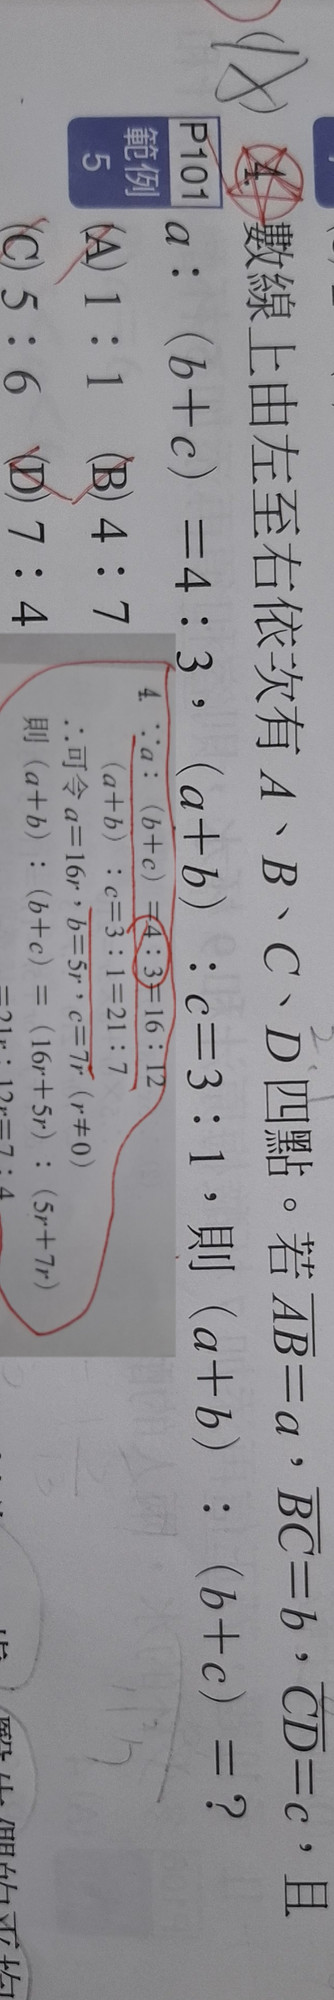 (D) 4. 數線上由左至右依次有 A、B、C、D 四點。若 AB=a,BC=b,CD=c,且
P101 a:(b+c)=4:3,(a+b):c=3:1,則(a+b):(b+c)=?
範例 5
(A) 1:1 (B) 4:7
(C) 5:6 (D) 7:4
4. ∵a:(b+c)=4:3=16:12
(a+b):c=3:1=21:7
∴可令 a=16r,b=5r,c=7r(r≠0)
則(a+b):(b+c)=(16r+5r):(5r+7r)
=21r:12r=7:4